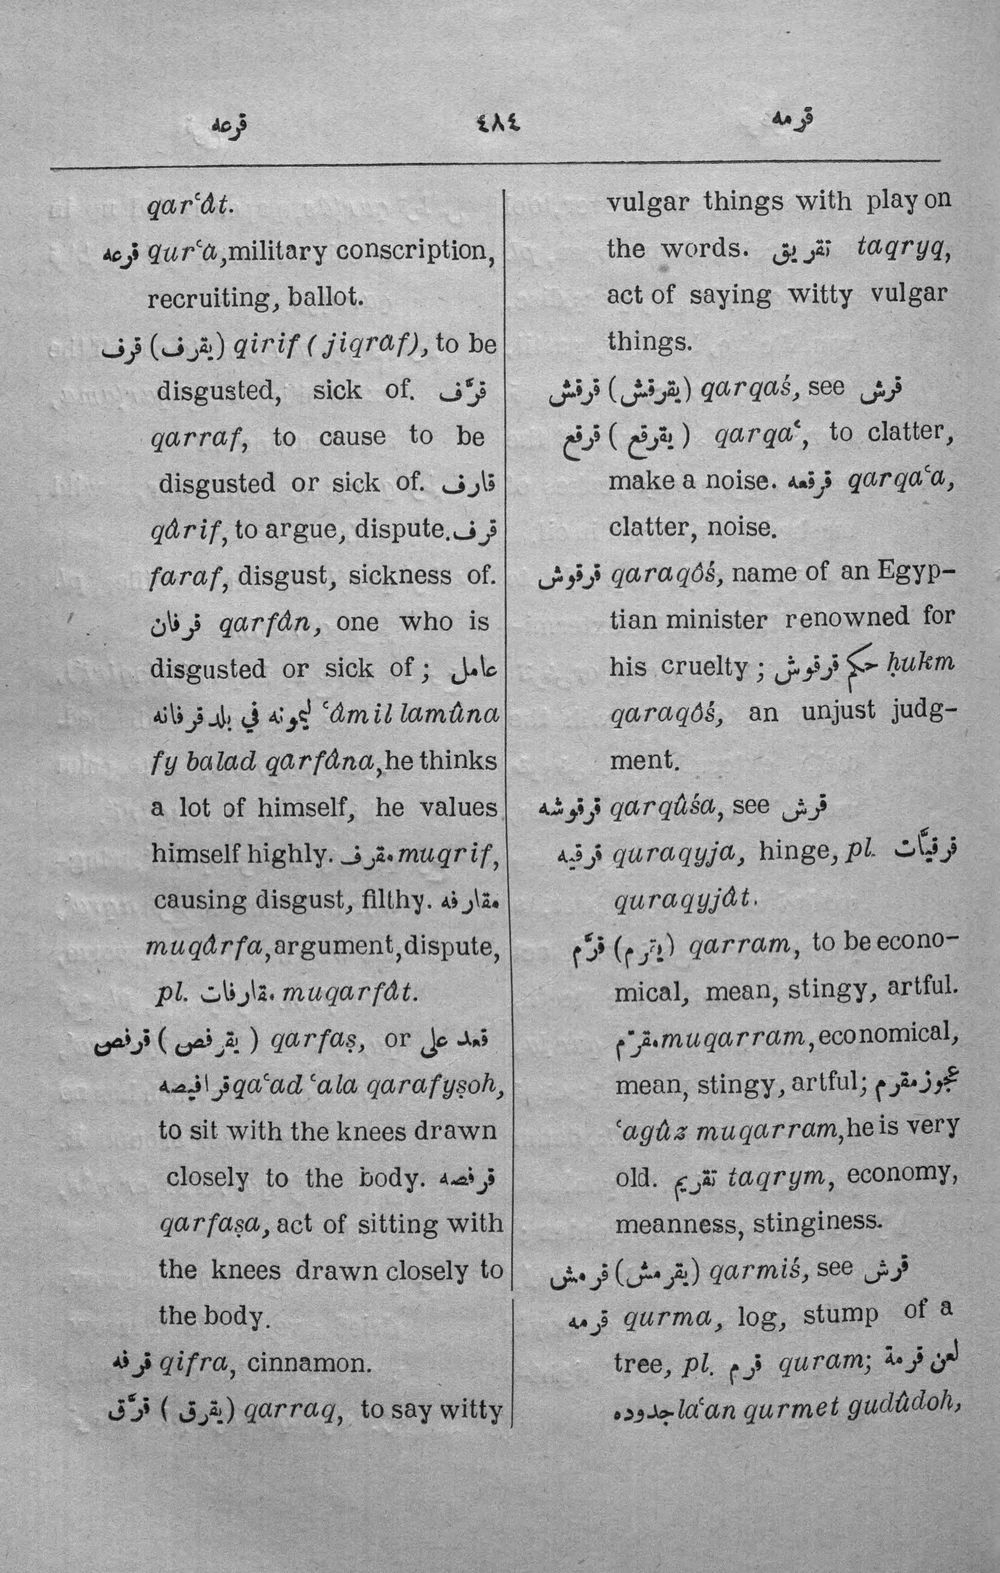 قرعه ٤٨٤ قرمه
qarʿât.
قرعه qurʿa, military conscription,
recruiting, ballot.
قرف (يقرف) qirif (jiqraf), to be
disgusted, sick of. قرَّف
qarraf, to cause to be
disgusted or sick of. قارف
qârif, to argue, dispute. قرف
faraf, disgust, sickness of.
قرفان qarfân, one who is
disgusted or sick of; عامل
ليمونه في بلد قرفانه ʿâmil lamûna
fy balad qarfâna, he thinks
a lot of himself, he values
himself highly. مقرف muqrif,
causing disgust, filthy. مقارفه
muqârfa, argument, dispute,
pl. مقارفات muqarfât.
قرفص (يقرفص) qarfaṣ, or قعد على
قرافيصه qaʿad ʿala qarafyṣoh,
to sit with the knees drawn
closely to the body. قرفصه
qarfaṣa, act of sitting with
the knees drawn closely to
the body.
قرفه qifra, cinnamon.
قرَّق (يقرق) qarraq, to say witty
vulgar things with play on
the words. تقريق taqryq,
act of saying witty vulgar
things.
قرقش (يقرقش) qarqaś, see قرش
قرقع (يقرقع) qarqaʿ, to clatter,
make a noise. قرقعه qarqaʿa,
clatter, noise.
قرقوش qaraqôś, name of an Egyp-
tian minister renowned for
his cruelty; حكم قرقوش ḥukm
qaraqôś, an unjust judg-
ment.
قرقوشه qarqûśa, see قرش
قرقيه quraqyja, hinge, pl. قرقيَّات
quraqyjât.
قرَّم (يقرم) qarram, to be econo-
mical, mean, stingy, artful.
مقرّم muqarram, economical,
mean, stingy, artful; عجوز مقرم
ʿagûz muqarram, he is very
old. تقريم taqrym, economy,
meanness, stinginess.
قرمش (يقرمش) qarmiś, see قرش
قرمه qurma, log, stump of a
tree, pl. قرم quram; لعن قرمة
جدوده laʿan qurmet gudûdoh,